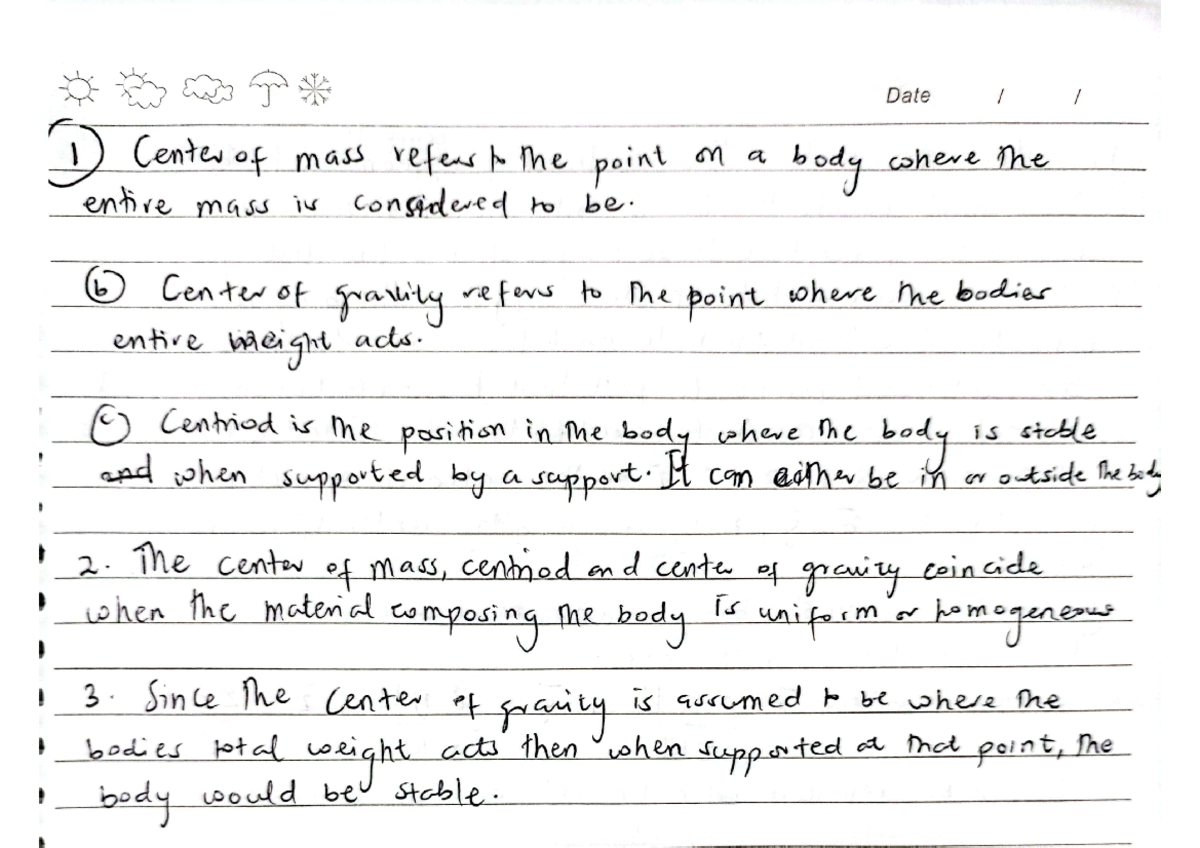 Date / /
1 Center of mass refers to the point on a body where the
entire mass is considered to be.
b Center of gravity refers to the point where the bodies
entire weight acts.
c Centriod is the position in the body where the body is stable
and when supported by a support. It can either be in or outside the body
2. The center of mass, centriod and center of gravity coincide
when the material composing the body is uniform or homogeneous
3. Since the center of gravity is assumed to be where the
bodies total weight acts then when supported at that point, the
body would be stable.